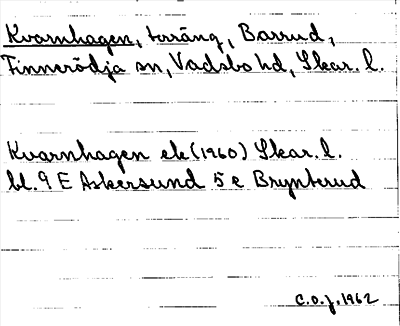 Kvarnhagen, terräng, Barrud,
Finnerödja sn, Vadsbo hd, Skar. l.
Kvarnhagen ek (1960) Skar. l.
bl. 9 E Askersund 5 e Brynterud
C.O.J. 1962